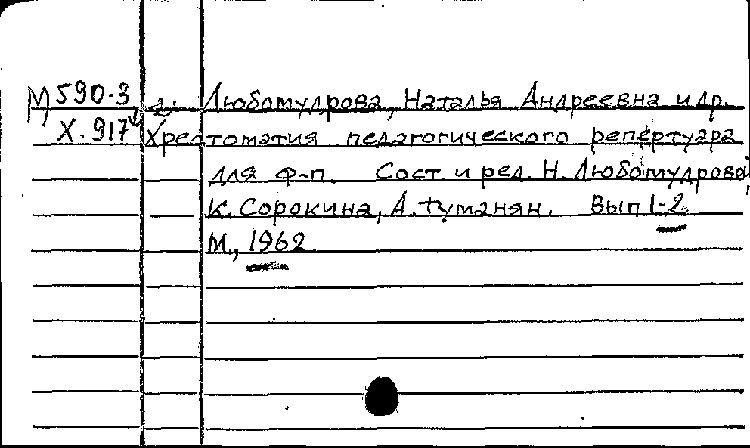 М 590-3 г. Любомудрова, Наталья Андреевна и др.
Х-917 Хрестоматия педагогического репертуара
для ф-п. Сост. и ред. Н. Любомудрова,
К. Сорокина, А. Туманян. Вып 1-2
М., 1962